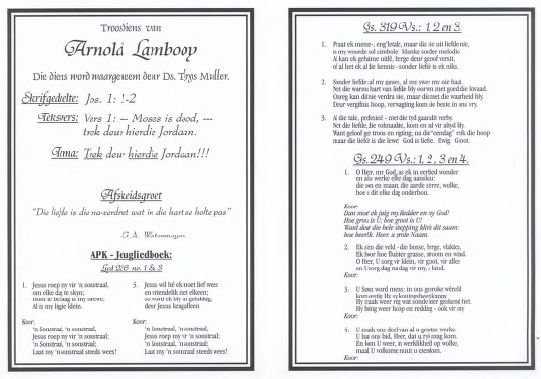 Troosdiens van
Arnold Lambooy
Die diens word waargeneem deur Ds. Thys Muller.
Skrifgedeelte: Jos. 1: 1-2
Teksvers: Vers 1: --- Moses is dood, ---
trek deur hierdie Jordaan.
Tema: Trek deur hierdie Jordaan!!!
Afskeidsgroet
"Die liefde is die na-verdriet wat in die hart se holte pas"
-G.A. Watermeyer
APK - Jeugliedboek:
Lied 226 no. 1 & 3
1. Jesus roep my vir 'n sonstraal,
om elke dag te skyn;
Al is my ligie klein.
Koor:
'n Sonstraal, 'n sonstraal,
Jesus roep my vir 'n sonstraal,
'n Sonstraal, 'n sonstraal;
Laat my 'n sonstraal steeds wees!
3. Jesus wil hê ek moet lief wees
en vriendelik net elkeen;
so word ek bly en gelukkig,
deur Jesus kragalleen
Koor:
'n Sonstraal, 'n sonstraal,
Jesus roep my vir 'n sonstraal,
'n Sonstraal, 'n sonstraal;
Laat my 'n sonstraal steeds wees!
Gs. 319 Vs.: 1, 2 en 3.
1. Praat ek mense-, engletale, maar dis nie uit liefde nie,
is my woorde sol simbole: klanke sonder melodie
Al kan ek geheime uitlê, berge deur geloof versit,
of al het ek al die kennis - sonder liefde is ek niks.
2. Sonder liefde: al my gawes, al my ywer my nie baat
Net die warme hart van liefde bly oorwin met goed die kwaad.
Onreg kan dit nie verdra nie, maar dis met die waarheid bly.
Deur vergifnis hoop, verwagting kom die beste in ons vry.
3. Al die tale, profesieë - met die tyd gaan dit verby.
Net die liefde, die volmaakte, kom en al vir altyd bly.
Want geloof gee troos en rigting; na die "eendag" reik die hoop
maar die liefde is die lewe God is liefde. Ewig. Groot.
Gs. 249 Vs.: 1, 2, 3 en 4.
1. O Heer, my God, as ek in eerbied wonder
en al u werke elke dag aanskou:
die son en maan, die aarde sterre, wolke,
hoe u dit elke dag onderhou.
Koor:
Dan moet ek juig my Redder en my God!
Hoe groot is U; hoe groot is U!
Want deur die hele skepping klink dit saam:
hoe heerlik, Heer, u grote Naam.
2. Ek sien die veld - die bosse, berge, vlaktes,
Ek hoor hoe fluister grasse, stroom en wind.
O Heer, U sorg vir klein, vir groot, vir alles
en U sorg dag na dag vir my, u kind.
Koor:
3. U Seun word mens: in ons geroke wêreld
Hy maak weer reg wat sonde hier geskend het.
Hy bring weer hoop en redding - ook vir my
Koor:
4. U maak ons deel van al u grootse werke.
U laat ons bid, Heer, dat u ryk mag kom.
En kom U weer, in werklikheid op wolke,
maak U volkome nuut u eiendom.
Koor: